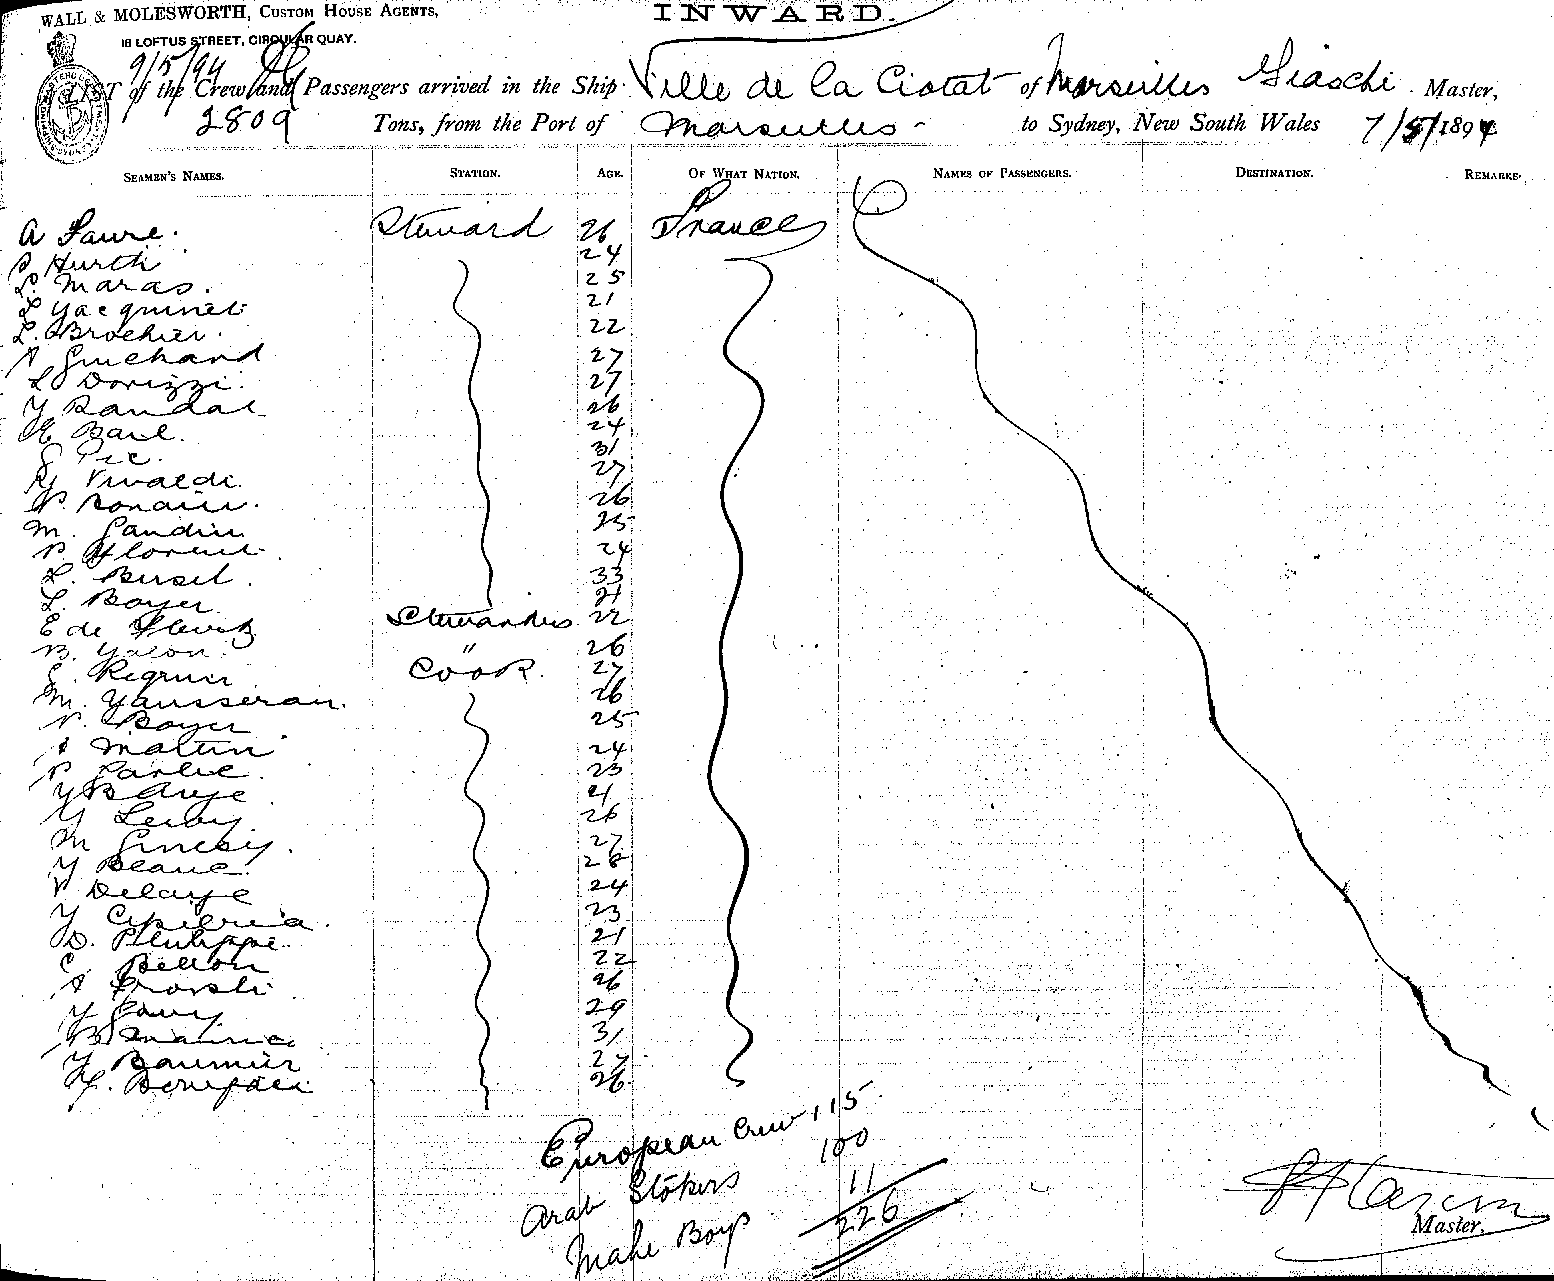 WALL & MOLESWORTH, CUSTOM HOUSE AGENTS,
18 LOFTUS STREET, CIRCULAR QUAY.
INWARD.
9/5/94
LIST of the Crew and Passengers arrived in the Ship Ville de la Ciotat of Marseilles Master,
2809 Tons, from the Port of Marseilles to Sydney, New South Wales 7/5/1894
SEAMEN'S NAMES. STATION. AGE. OF WHAT NATION. NAMES OF PASSENGERS. DESTINATION. REMARKS.
A Faure. Steward 26 France
Hurth 24
L. Maras. 25
L Yacquinet 21
L. Brochier. 22
A Guichand 27
L Dorizzi. 27
Y Randal 26
E Baul. 24
G Pic. 31
Y Vivaldi. 27
P. Bonain. 26
M. Gandin 25
P. Florent. 24
L. Bursel. 33
L. Boyer 21
E de Stewardess 22
B. Yalon. " 26
Regnier Cook. 27
M. Yausseran. 26
P. Boyer 25
A Martin 24
P 23
Y 21
Y Leroy 26
M 27
Y Beaue. 28
P Delaye 24
Y 23
D. Philippe. 21
C. Bellon 22
A 26
Y 29
B 31
Y Baumier 27
Bonifaci 26
European Crew 115
Arab Stokers 100
Mahe Boys 11
226
Master.